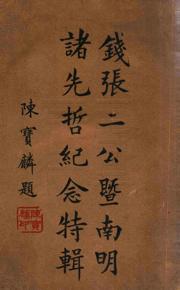 錢張二公暨南明
諸先哲紀念特輯
陳寶麟題